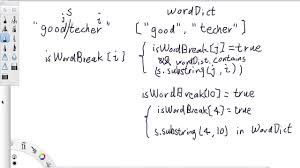 wordDict
j s i
"good/techer" ["good", "techer"]
isWordBreak[i] { isWordBreak[j] = true
&& wordDict.contains
(s.substring(j, i))
isWordBreak[10] = true
{ isWordBreak[4] = true
s.substring(4,10) in WordDict